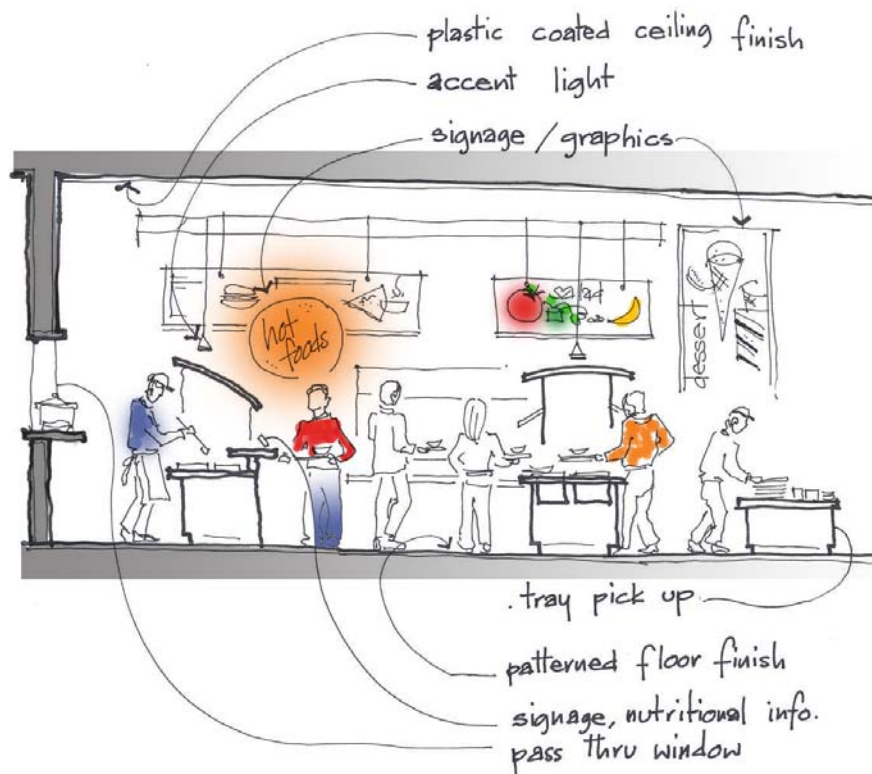 plastic coated ceiling finish
accent light
signage / graphics
hot
foods
salad
dessert
tray pick up
patterned floor finish
signage, nutritional info.
pass thru window